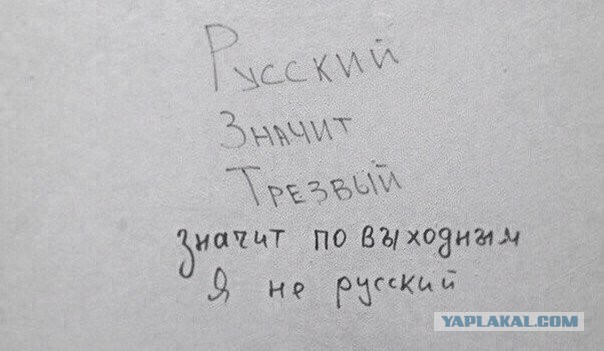 Русский
Значит
Трезвый
значит по выходным
Я не русский
YAPLAKAL.COM